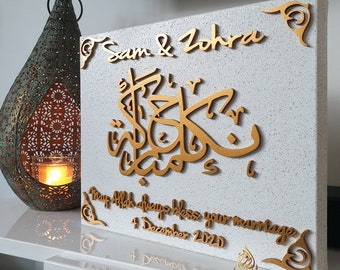 Sam & Zohra
نكاح مبارك
May Allah always bless your marriage
4 December 2020